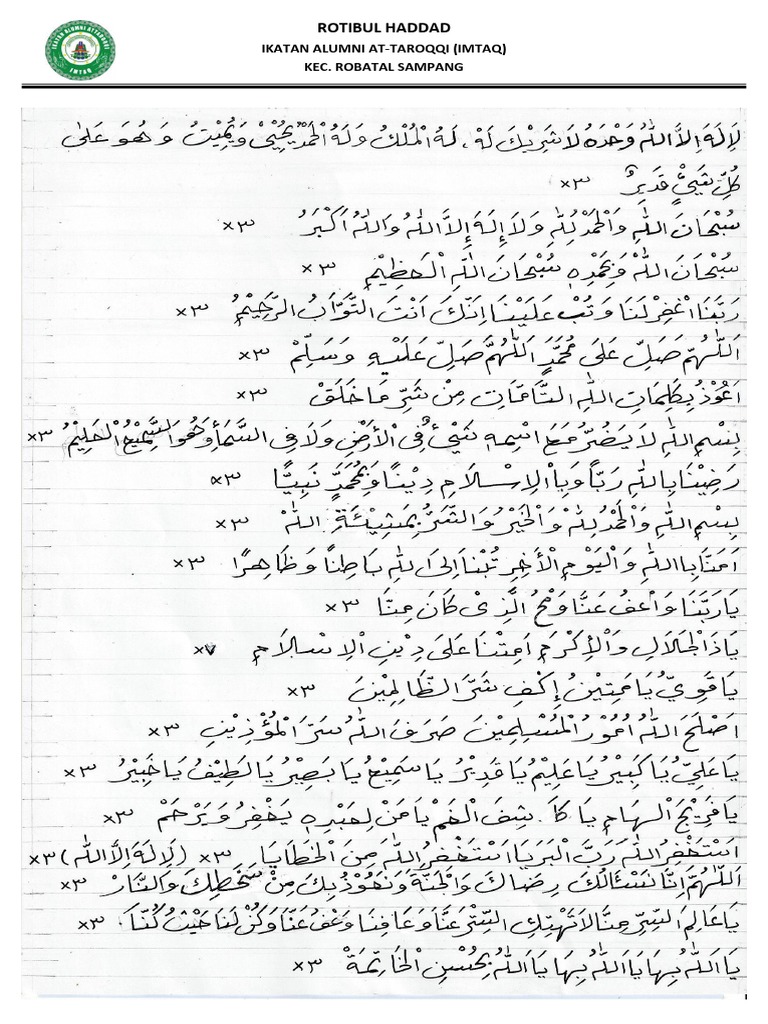 ROTIBUL HADDAD
IKATAN ALUMNI AT-TAROQQI (IMTAQ)
KEC. ROBATAL SAMPANG
IKATAN ALUMNI ATTAROQI
IMTAQ
لَااِلَهَ اِلاَّ اللهُ وَحْدَهُ لَا شَرِيْكَ لَهْ، لَهُ الْمُلْكُ وَلَهُ الْحَمْدُ يُحْيِىْ وَيُمِيْتُ وَهُوَ عَلىَ
كُلِّ شَيْءٍ قَدِيرٌ ×٣
سُبْحَانَ اللهِ وَالْحَمْدُ لِلّٰهِ وَلَا إِلهَ إِلاَّ اللهُ وَاللهُ اَكْبَرُ ×٣
سُبْحَانَ اللهْ وَبِحَمْدِهِ سُبْحَانَ اللهِ الْعَظِيْمِ ×٣
رَبَّنَا اغْفِرْلَنَا وَتُبْ عَلَيْنَا اِنَّكَ اَنْتَ التَّوَّابُ الرَّحِيْمُ ×٣
اَللّٰهُمَّ صَلِّ عَلَى مُحَمَّدٍ اَللّٰهُمَّ صَلِّ عَلَيْهِ وَسَلِّمْ ×٣
اَعُوْذُ بِكَلِمَاتِ اللهِ التَّامَّاتِ مِنْ شَرِّ مَا خَلَقْ ×٣
بِسْمِ اللهِ لَا يَضُرُّ مَعَ اسْمِهِ شَيْئٌ فِى الْأَرْضِ وَلَا فِى السَّمَأِ وَهُوَ السَّمِيْعُ الْعَلِيْمُ ×٣
رَضِيْنَا بِاللهِ رَبًّا وَبِاْلاِسْلَامِ دِيْنًا وَبِمُحَمَّدٍ نَبِيًّا ×٣
بِسْمِ اللهِ وَالْحَمْدُ لِلّٰهْ وَالْخَيْرُ وَالشَّرُّ بِمَشِيْئَةِ اللهْ ×٣
اٰمَنَّا بِااللهِ وَالْيَوْمِ الْأَخِرِ تُبْنَا اِلىَ اللهِ بَاطِنًا وَظَاهِرًا ×٣
يَارَبَّنَا وَاعْفُ عَنَّا وَمْحُ الَّذِىْ كَانَ مِنَّا ×٣
يَاذَالْجَلَالِ وَالْإِكْرَمِ اَمِتْنَا عَلىَ دِيْنِ الْاِسْلَامِ ×٧
يَاقَوِيُّ يَامَتِيْنُ إِكْفِ شَرَّ الظَّالِمِيْنَ ×٣
اَصْلَحَ اللهُ اُمُوْرُ الْمُسْلِمِيْنَ صَرَفَ اللهُ سَرَّ الْمُؤْذِيْنِ ×٣
يَاعَلِيُّ يَاكَبِيْرُ يَاعَلِيْمُ يَاقَدِيْرُ يَاسَمِيْعُ يَابَصِيْرُ يَالَطِيْفُ يَاخَبِيْرُ ×٣
يَافَرِيْجَ الْهَامِ يَا كَا. شِفَ الْغَمِّ يَامَنْ لِعَبْرِهِ يَغْفِرُ وَيَرْحَمْ ×٣
اَسْتَغْفِرُ اللهَ رَبَّ الْبَرَيَا اَسْتَغْفِرُ اللهَ مِنَ الْخَطَايَا ×٣ (لَااِلهَ اِلاَّ الله) ×٣
اَللّٰهُمَّ اِنَّا نَسْئَالُكَ رِضَاكَ وَالْجَنَّةَ وَنَعُوْذُ بِكَ مِنْ سَخَطِكَ وَالنَّارْ ×٣
يَاعَالِمَ السِّرِّ مِنَّا لَاتَهْتِكِ السِّتْرَ عَنَّا وَعَافِنَا وَعْفُ عَنَّا وَكُنْ لَنَا حَيْثُ كُنَّا. ×٣
يَا اَللهُ بِهَا يَا اَللهُ بِهَا يَا اَللهُ بِحُسْنِ الْخَاتِمَةْ ×٣